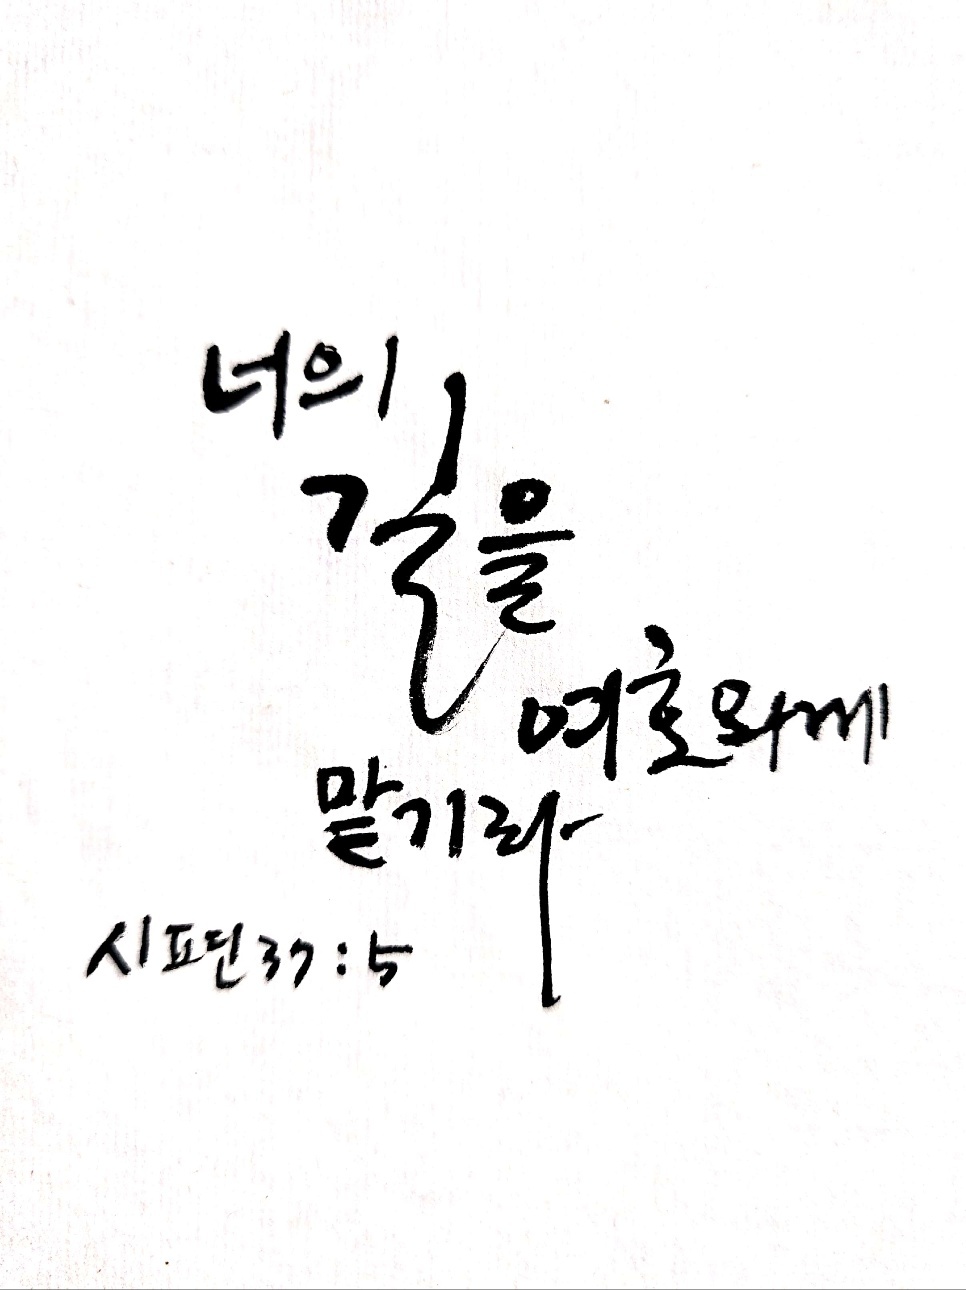 너의
길을
여호와께
맡기라
시편 37:5